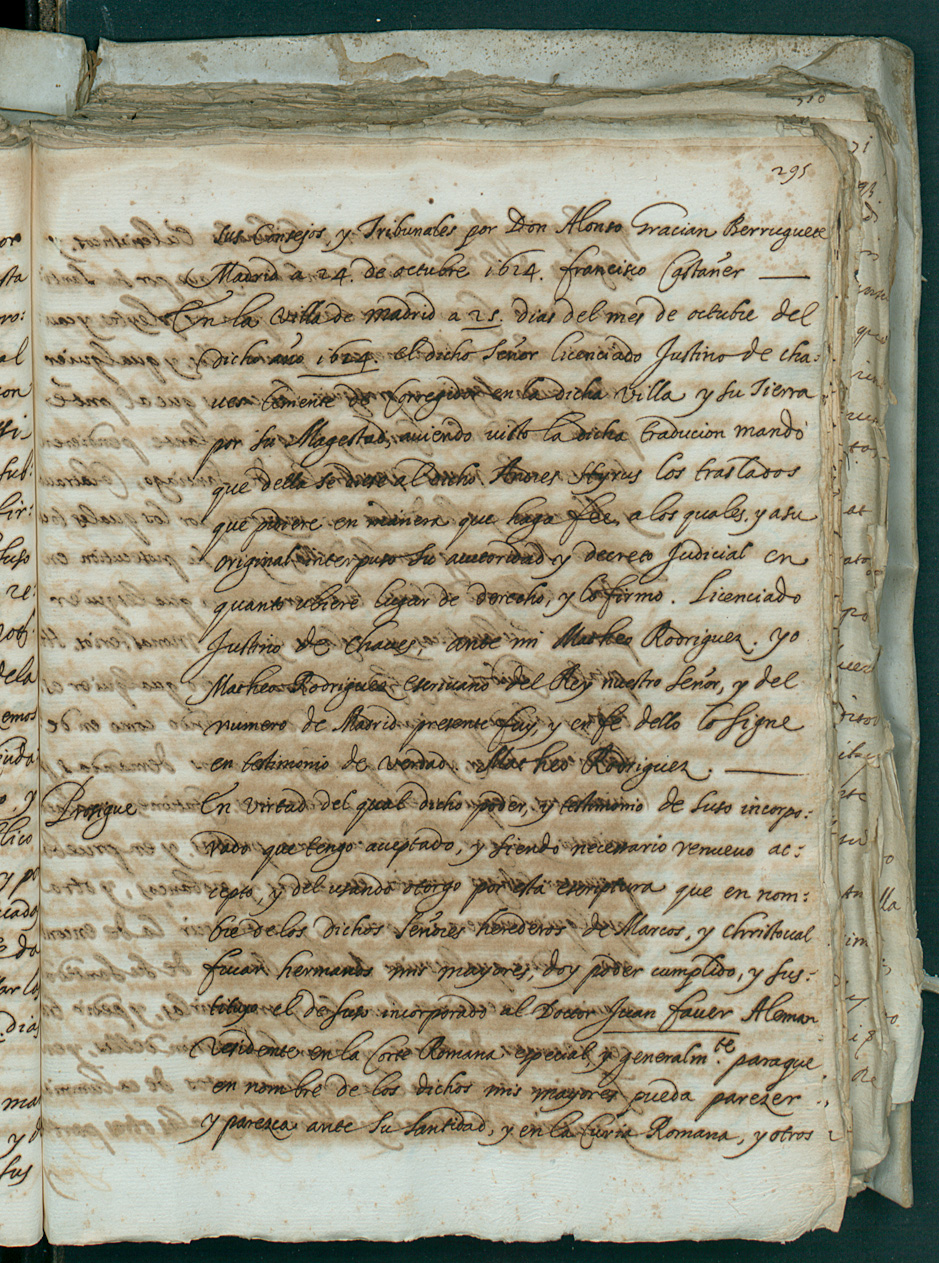 295
sus Consejos, y Tribunales por Don Alonso Gracian Berruguete
Madrid a 24. de octubre 1624. francisco Castañer
En la Villa de madrid a 25. dias del mes de octubre del
dicho año 1624. el dicho Señor licenciado Justino de cha:
ues teniente de Corregidor en la dicha Villa y su Tierra
por su Magestad, auiendo uisto la dicha traducion mandò
que della se diese al dicho Andres Hyrus los traslados
que pidiere en manera que haga fee, a los quales, y a su
original interpuso su autoridad y decreto Judicial en
quanto ubiere lugar de derecho, y lo firmo. Licenciado
Justino de Chaues, ante mi Matheo Rodriguez. yo
Matheo Rodriguez escriuano del Rey nuestro señor, y del
numero de Madrid presente fuy, y en fe dello lo signe
en testimonio de verdad. Matheo Rodriguez
Prosigue
En virtud del qual dicho poder, y testimonio de suso incorpo:
rado que tengo aceptado, y siendo necesario renueuo ac:
cepto, y del usando otorgo por esta escriptura que en nom:
bre de los dichos señores herederos de Marcos, y Christoual
fucar hermanos mis mayores, doy poder cumplido, y sus:
tituyo el de suso incorporado al Doctor Juan faver Aleman
residente en la Corte Romana especial, y generalm.te paraque
en nombre de los dichos mis mayores pueda parezer
y paresca ante su Santidad, y en la Curia Romana, y otros